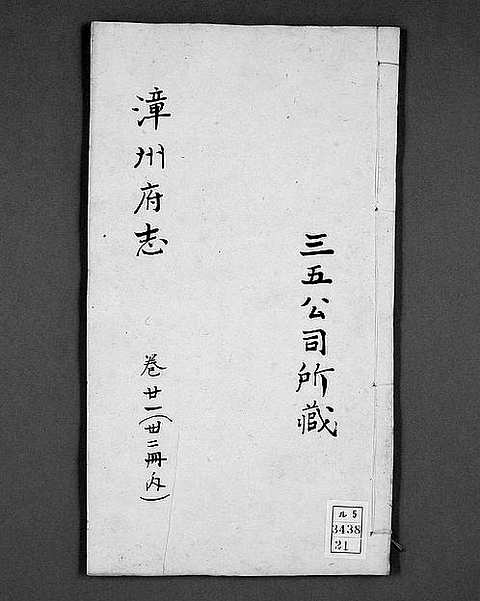 三五公司所藏
漳州府志
卷廿一(卅二冊内)
ル5
3438
21